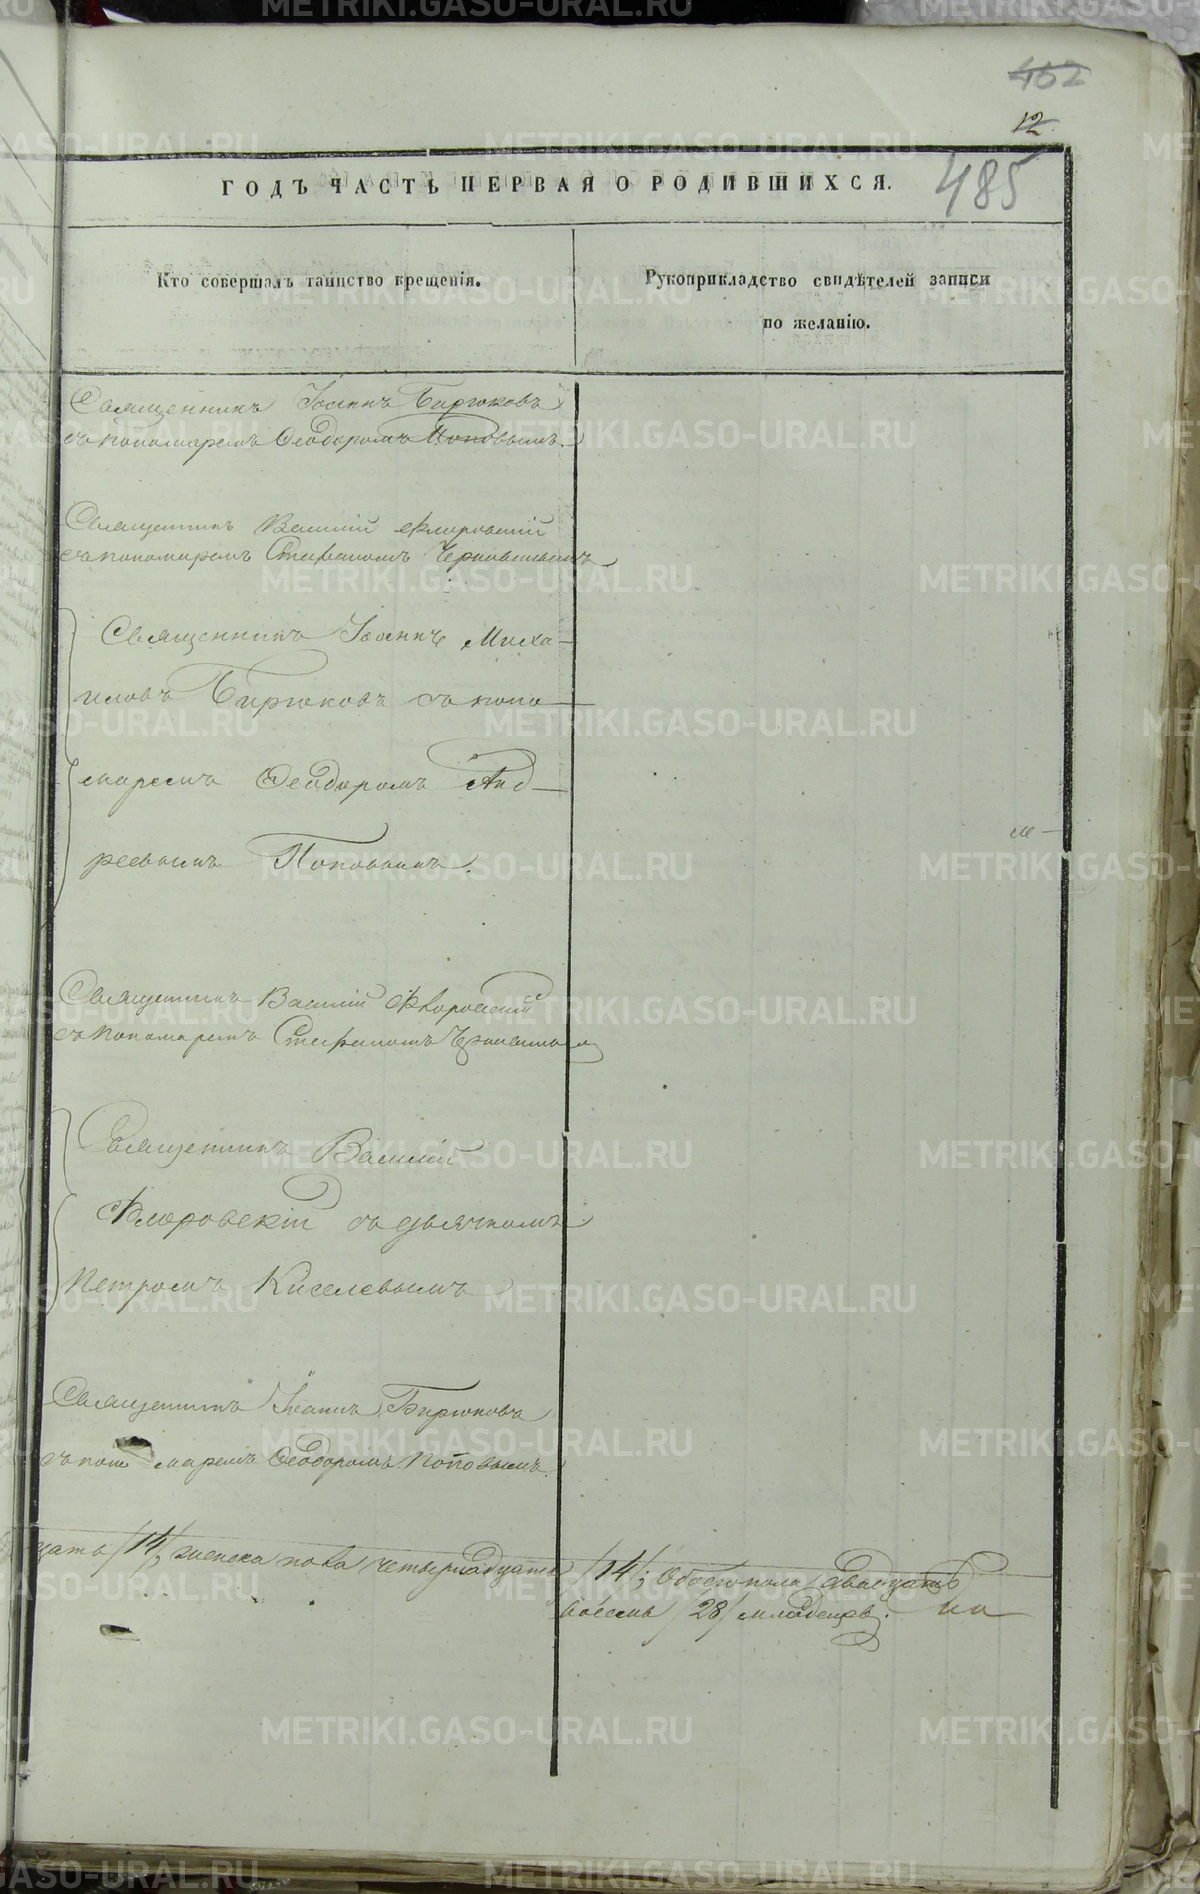 462
12
485
ГОДЪ ЧАСТЬ ПЕРВАЯ О РОДИВШИХСЯ.
Кто совершалъ таинство крещенія.
Рукоприкладство свидѣтелей записи
по желанію.
Священникъ Іоаннъ Бирюковъ
съ пономаремъ Ѳеодоромъ Поповымъ.
Священникъ Василій Флоровскій
съ пономаремъ Стефаномъ
Священникъ Іоаннъ Миха-
иловъ Бирюковъ съ поно-
маремъ Ѳеодоромъ Анд-
реевымъ Поповымъ.
Священникъ Василій Флоровскій
съ пономаремъ Стефаномъ
Священникъ Василій
Флоровскій съ дьячкомъ
Петромъ Киселевымъ
Священникъ Іоаннъ Бирюковъ
съ поно маремъ Ѳеодоромъ Поповымъ.
цать /14/, женска пола четырнадцать /14/; обоего пола двадцать
восемь /28/ младенцевъ.
METRIKI.GASO-URAL.RU